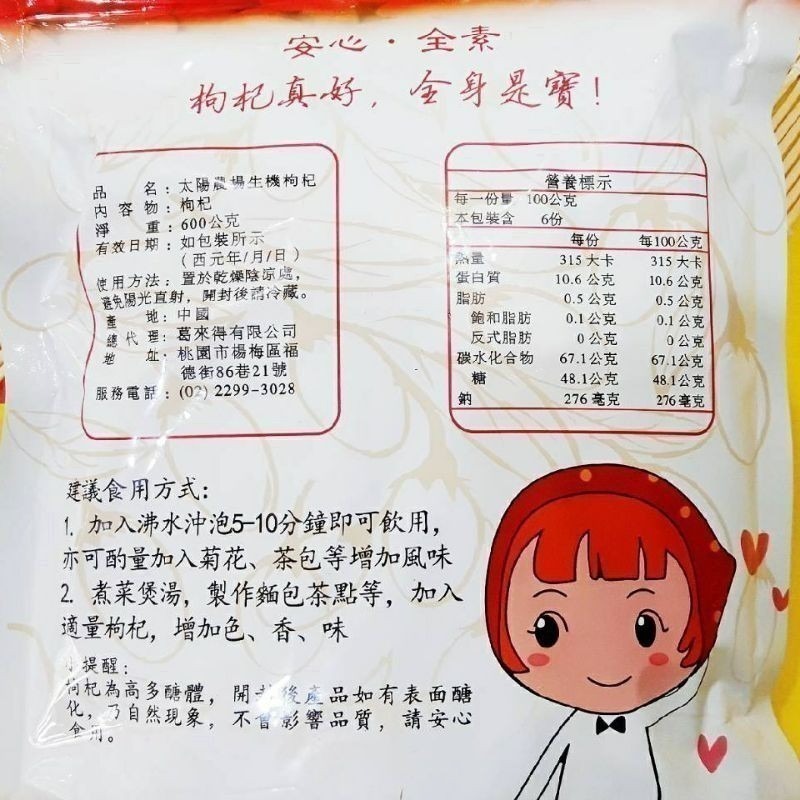 安心·全素
枸杞真好，全身是寶！
品名：太陽農場生機枸杞
內容物：枸杞
淨重：600公克
有效日期：如包裝所示
（西元年/月/日）
使用方法：置於乾燥陰涼處，
避免陽光直射，開封後請冷藏。
產地：中國
總代理：葛來得有限公司
地址：桃園市楊梅區福
德街86巷21號
服務電話：(02) 2299-3028
營養標示
每一份量 100公克
本包裝含 6份
每份 每100公克
熱量 315 大卡 315 大卡
蛋白質 10.6 公克 10.6 公克
脂肪 0.5 公克 0.5 公克
飽和脂肪 0.1 公克 0.1 公克
反式脂肪 0 公克 0 公克
碳水化合物 67.1公克 67.1公克
糖 48.1公克 48.1公克
鈉 276 毫克 276 毫克
建議食用方式：
1. 加入沸水沖泡5-10分鐘即可飲用，
亦可酌量加入菊花、茶包等增加風味
2. 煮菜煲湯，製作麵包茶點等，加入
適量枸杞，增加色、香、味
小提醒：
枸杞為高多醣體，開封後產品如有表面醣
化，乃自然現象，不會影響品質，請安心
食用。